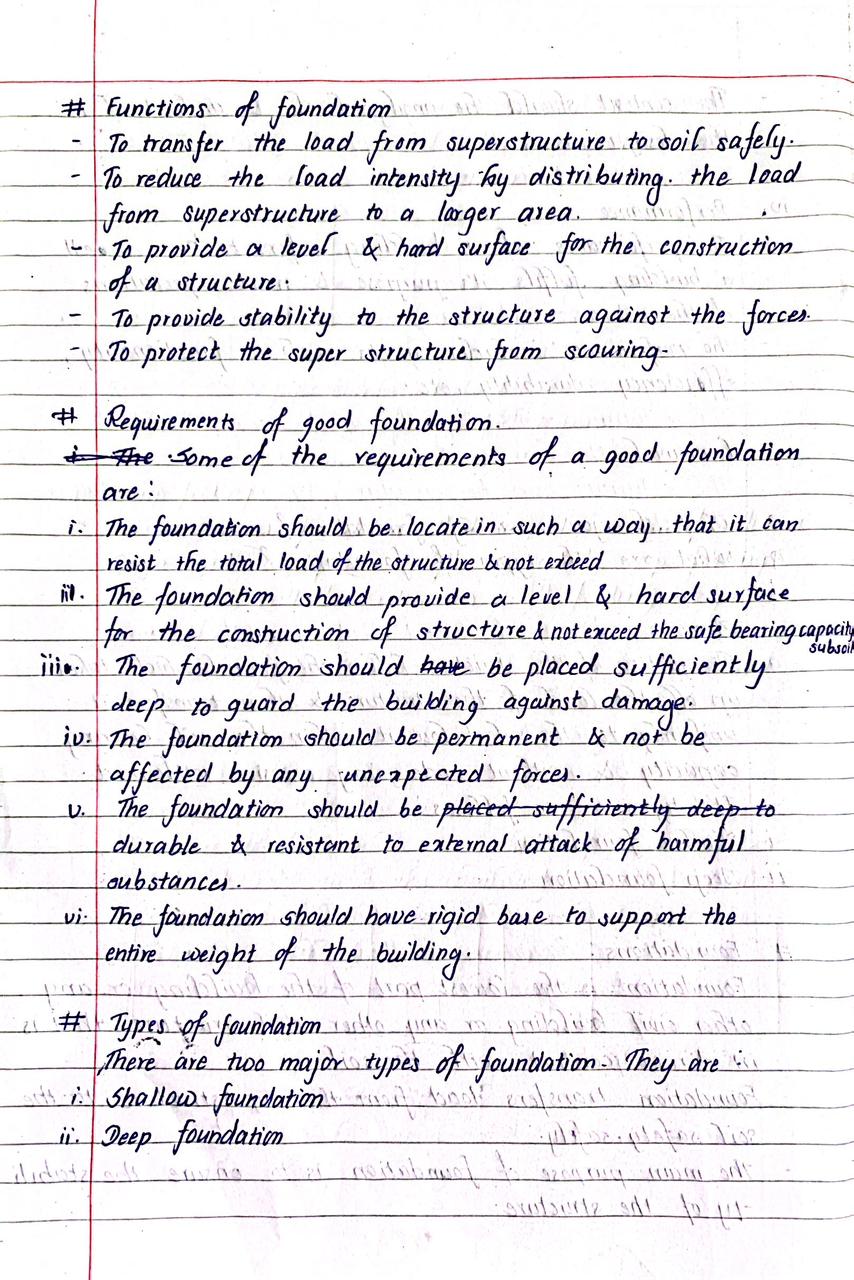 # Functions of foundation
- To transfer the load from superstructure to soil safely.
- To reduce the load intensity by distributing. the load
from superstructure to a larger area.
- To provide a level & hard surface for the construction
of a structure.
- To provide stability to the structure against the forces.
- To protect the super structure from scouring-
# Requirements of good foundation.
i. The Some of the requirements of a good foundation
are:
i. The foundation should be locate in such a way that it can
resist the total load of the structure & not exceed
iii. The foundation should provide a level & hard surface
for the construction of structure & not exceed the safe bearing capacity
subsoil
iiio. The foundation should have be placed sufficiently
deep to guard the building against damage.
iv. The foundation should be permanent & not be
affected by any unexpected forces.
v. The foundation should be placed sufficiently deep to
durable & resistant to external attack of harmful
substances.
vi. The foundation should have rigid base to support the
entire weight of the building.
# Types of foundation
There are two major types of foundation. They are :-
i. Shallow foundation
ii. Deep foundation